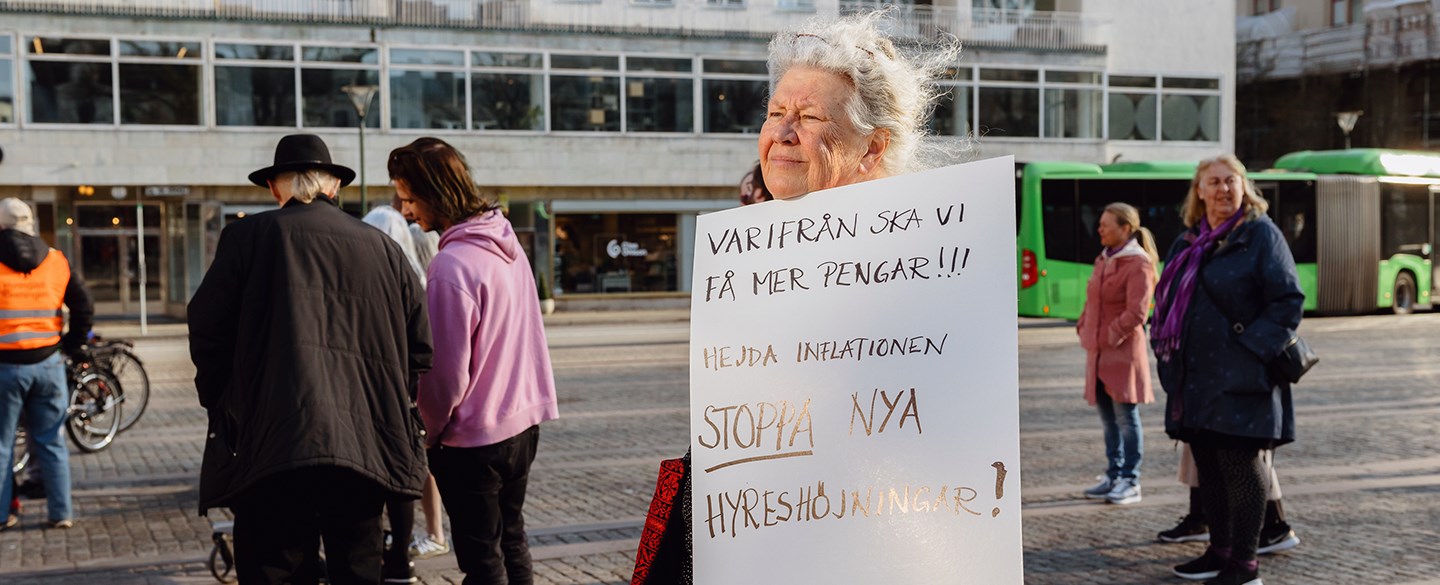 VARIFRÅN SKA VI
FÅ MER PENGAR!!!
HEJDA INFLATIONEN
STOPPA NYA
HYRESHÖJNINGAR!